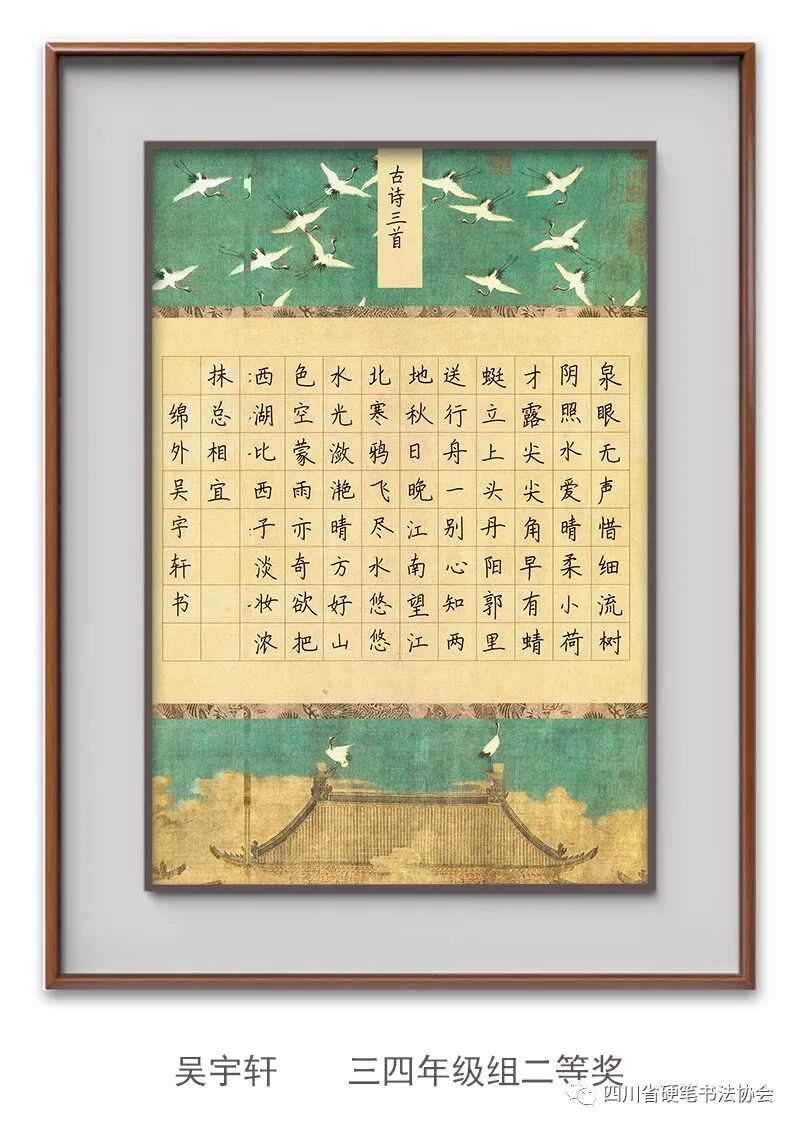 古诗三首
泉眼无声惜细流树
阴照水爱晴柔小荷
才露尖尖角早有蜻
蜓立上头丹阳郭里
送行舟一别心知两
地秋日晚江南望江
北寒鸦飞尽水悠悠
水光潋滟晴方好山
色空蒙雨亦奇欲把
西湖比西子淡妆浓
抹总相宜
绵外吴宇轩书
吴宇轩 三四年级组二等奖
四川省硬笔书法协会